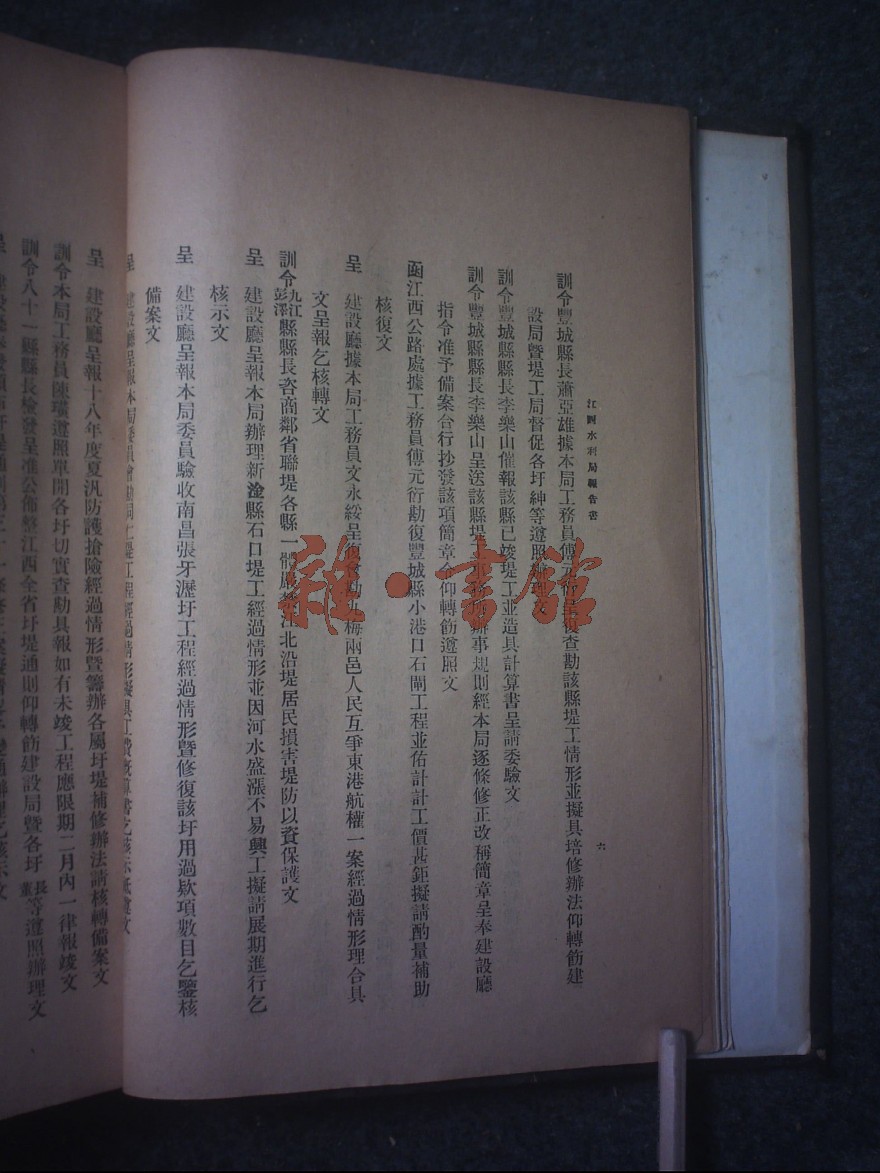 江西水利局報告書
六
訓令豐城縣長蕭亞雄據本局工務員傅元衍呈復查勘該縣堤工情形並擬具培修辦法仰轉飭建
設局暨堤工局督促各圩紳等遵照辦理文
訓令豐城縣縣長李樂山催報該縣已竣堤工並造具計算書呈請委驗文
訓令豐城縣縣長李樂山呈送該縣堤工事務所辦事規則經本局逐條修正改稱簡章呈奉建設廳
指令准予備案合行抄發該項簡章令仰轉飭遵照文
函江西公路處據工務員傅元衍勘復豐城縣小港口石閘工程並估計計工價甚鉅擬請酌量補助
核復文
呈 建設廳據本局工務員文永綏呈復會勘九梅兩邑人民互爭東港航權一案經過情形理合具
文呈報乞核轉文
訓令九江彭澤縣縣長咨商鄰省聯堤各縣一體嚴禁江北沿堤居民損害堤防以資保護文
呈 建設廳呈報本局辦理新淦縣石口堤工經過情形並因河水盛漲不易興工擬請展期進行乞
核示文
呈 建設廳呈報本局委員驗收南昌張牙瀝圩工程經過情形暨修復該圩用過欵項數目乞鑒核
備案文
呈 建設廳呈報本局
呈 建設廳呈報十八年度夏汛防護搶險經過情形暨籌辦各屬圩堤補修辦法請核轉備案文
訓令本局工務員陳璜遵照單開各圩切實查勘具報如有未竣工程應限期二月內一律報竣文
訓令八十一縣縣長檢發呈准公佈整江西全省圩堤通則仰轉飭建設局暨各圩長董等遵照辦理文
雜·書館